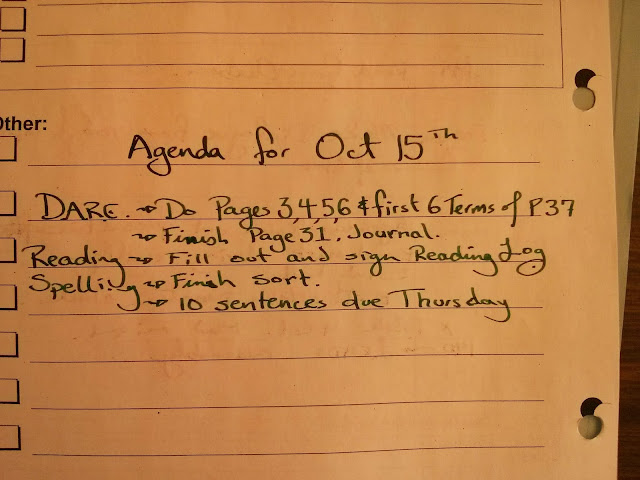 Other:
Agenda for Oct 15Th
DARE. → Do Pages 3,4,5,6 & first 6 Terms of P.37
→ Finish Page 31. Journal.
Reading → Fill out and sign Reading Log
Spelling → Finish sort.
→ 10 sentences due Thursday